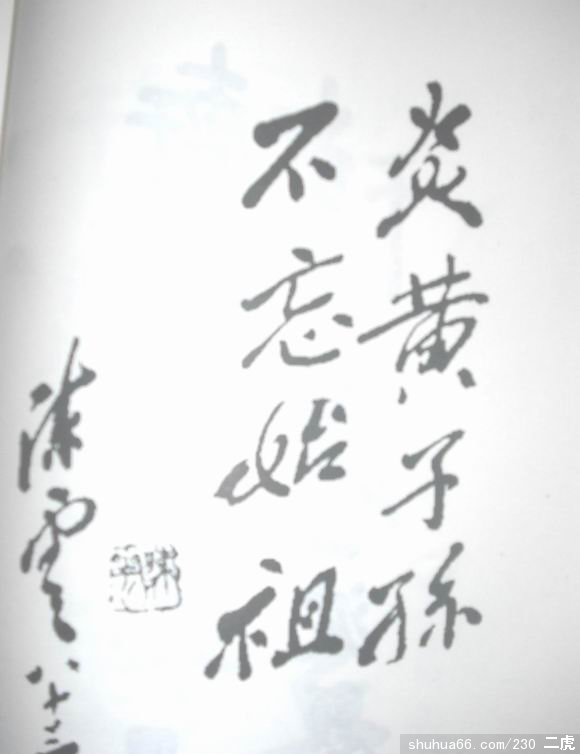 炎黄子孫
不忘始祖
陳雲 八十三
shuhua66.com/230 二虎